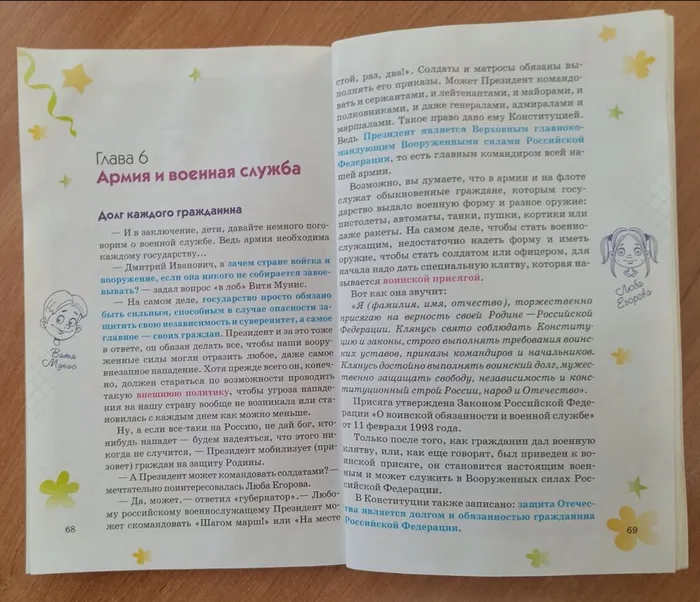 Глава 6
Армия и военная служба
Долг каждого гражданина
— И в заключение, дети, давайте немного пого-
ворим о военной службе. Ведь армия необходима
каждому государству...
— Дмитрий Иванович, а зачем стране войска и
вооружение, если она никого не собирается завое-
вывать? — задал вопрос «в лоб» Витя Мунис.
— На самом деле, государство просто обязано
быть сильным, способным в случае опасности за-
щитить свою независимость и суверенитет, а самое
главное — своих граждан. Президент и за это тоже
в ответе, он обязан делать все, чтобы наши воору-
женные силы могли отразить любое, даже самое
внезапное нападение. Хотя прежде всего он, конеч-
но, должен стараться по возможности проводить
такую внешнюю политику, чтобы угроза нападе-
ния на нашу страну вообще не возникала или ста-
новилась с каждым днем как можно меньше.
Ну, а если все-таки на Россию, не дай бог, кто-
нибудь нападет — будем надеяться, что этого ни-
когда не случится, — Президент мобилизует (при-
зовет) граждан на защиту Родины.
— А Президент может командовать солдатами? —
мечтательно поинтересовалась Люба Егорова.
— Да, может, — ответил «губернатор». — Любо-
му российскому военнослужащему Президент мо-
жет скомандовать «Шагом марш!» или «На месте
Витя
Мунис
68
стой, раз, два!». Солдаты и матросы обязаны вы-
полнять его приказы. Может Президент командо-
вать и сержантами, и лейтенантами, и майорами, и
полковниками, и даже генералами, адмиралами и
маршалами. Такое право дано ему Конституцией.
Ведь Президент является Верховным главноко-
мандующим Вооруженными силами Российской
Федерации, то есть главным командиром всей на-
шей армии.
Возможно, вы думаете, что в армии и на флоте
служат обыкновенные граждане, которым госу-
дарство выдало военную форму и разное оружие:
пистолеты, автоматы, танки, пушки, кортики или
даже ракеты. На самом деле, чтобы стать военно-
служащим, недостаточно надеть форму и иметь
оружие, чтобы стать солдатом или офицером, для
начала надо дать специальную клятву, которая на-
зывается воинской присягой.
Вот как она звучит:
«Я (фамилия, имя, отчество), торжественно
присягаю на верность своей Родине — Российской
Федерации. Клянусь свято соблюдать Конститу-
цию и законы, строго выполнять требования воинс-
ких уставов, приказы командиров и начальников.
Клянусь достойно выполнять воинский долг, муже-
ственно защищать свободу, независимость и кон-
ституционный строй России, народ и Отечество».
Присяга утверждена Законом Российской Феде-
рации «О воинской обязанности и военной службе»
от 11 февраля 1993 года.
Только после того, как гражданин дал военную
клятву, или, как еще говорят, был приведен к во-
инской присяге, он становится настоящим воен-
ным и может служить в Вооруженных силах Рос-
сийской Федерации.
В Конституции также записано: защита Отечес-
тва является долгом и обязанностью гражданина
Российской Федерации.
Люба
Егорова
69